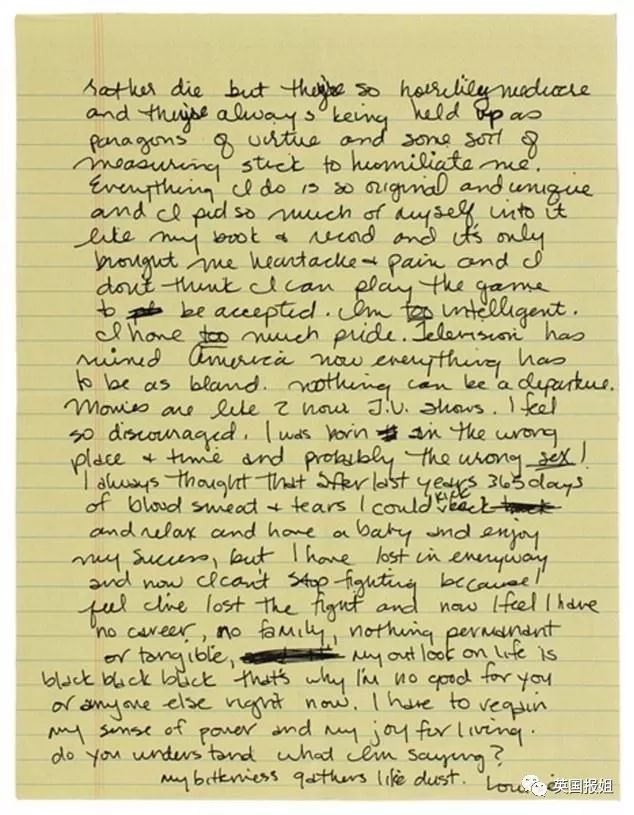 rather die but they're so horribly mediocre
and they're always being held up as
paragons of virtue and some sort of
measuring stick to humiliate me.
Everything I do is so original and unique
and I put so much of myself into it
like my book & record and it's only
brought me heartache & pain and I
don't think I can play the game
to be accepted. I'm too intelligent.
I have too much pride. Television has
ruined America now everything has
to be as bland. nothing can be a departure.
Movies are like 2 hour T.V. shows. I feel
so discouraged. I was born in the wrong
place & time and probably the wrong sex!
I always thought that after last years 365 days
of blood sweat & tears I could kick back
and relax and have a baby and enjoy
my success, but I have lost in everyway
and now I can't stop fighting because I
feel I've lost the fight and now I feel I have
no career, no family, nothing permanant
or tangible, my outlook on life is
black black black that's why I'm no good for you
or anyone else right now. I have to regain
my sense of power and my joy for living.
do you understand what I'm saying?
my bitterness gathers like dust.
英国报姐